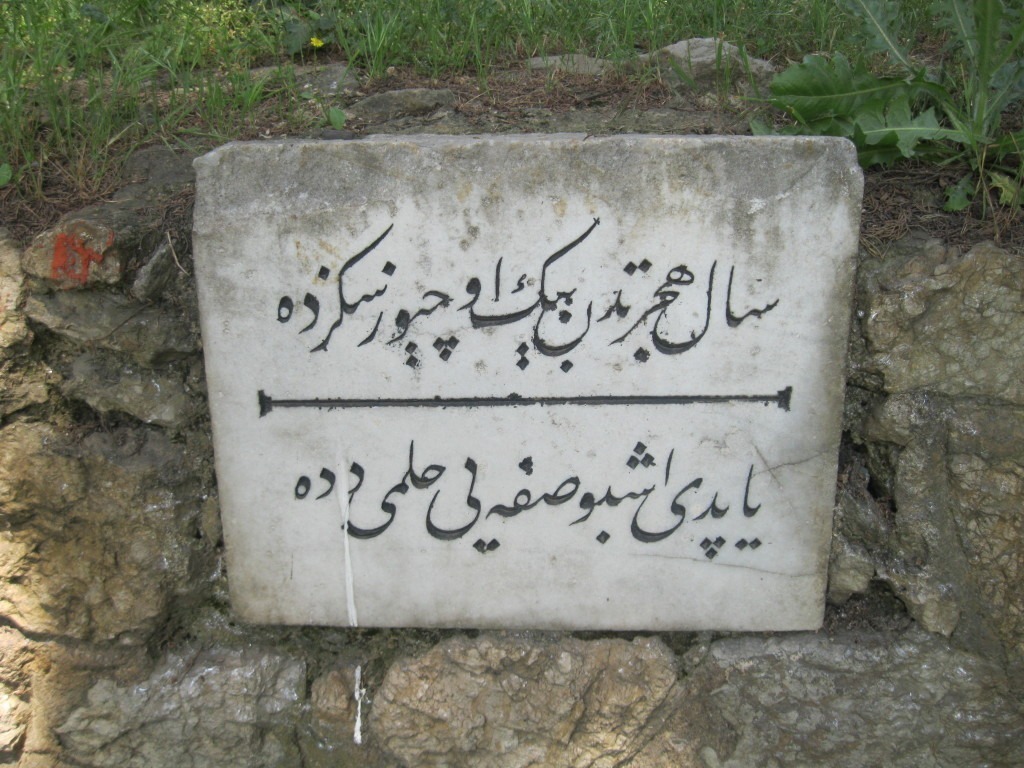 سال هجرتدن بیك اوچیوز سکزده
یاپدی اشبو صفه یی حلمی دده